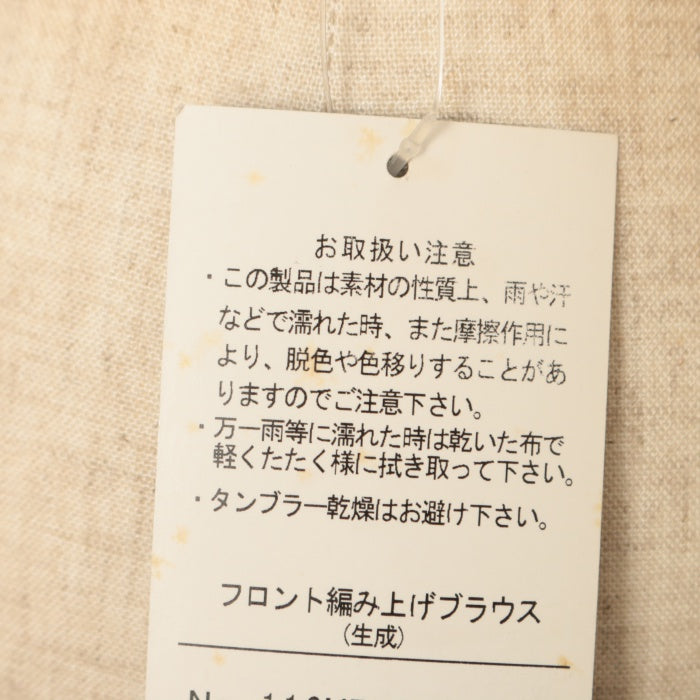 お取扱い注意
・この製品は素材の性質上、雨や汗
などで濡れた時、また摩擦作用に
より、脱色や色移りすることがあ
りますのでご注意下さい。
・万一雨等に濡れた時は乾いた布で
軽くたたく様に拭き取って下さい。
・タンブラー乾燥はお避け下さい。
フロント編み上げブラウス
(生成)